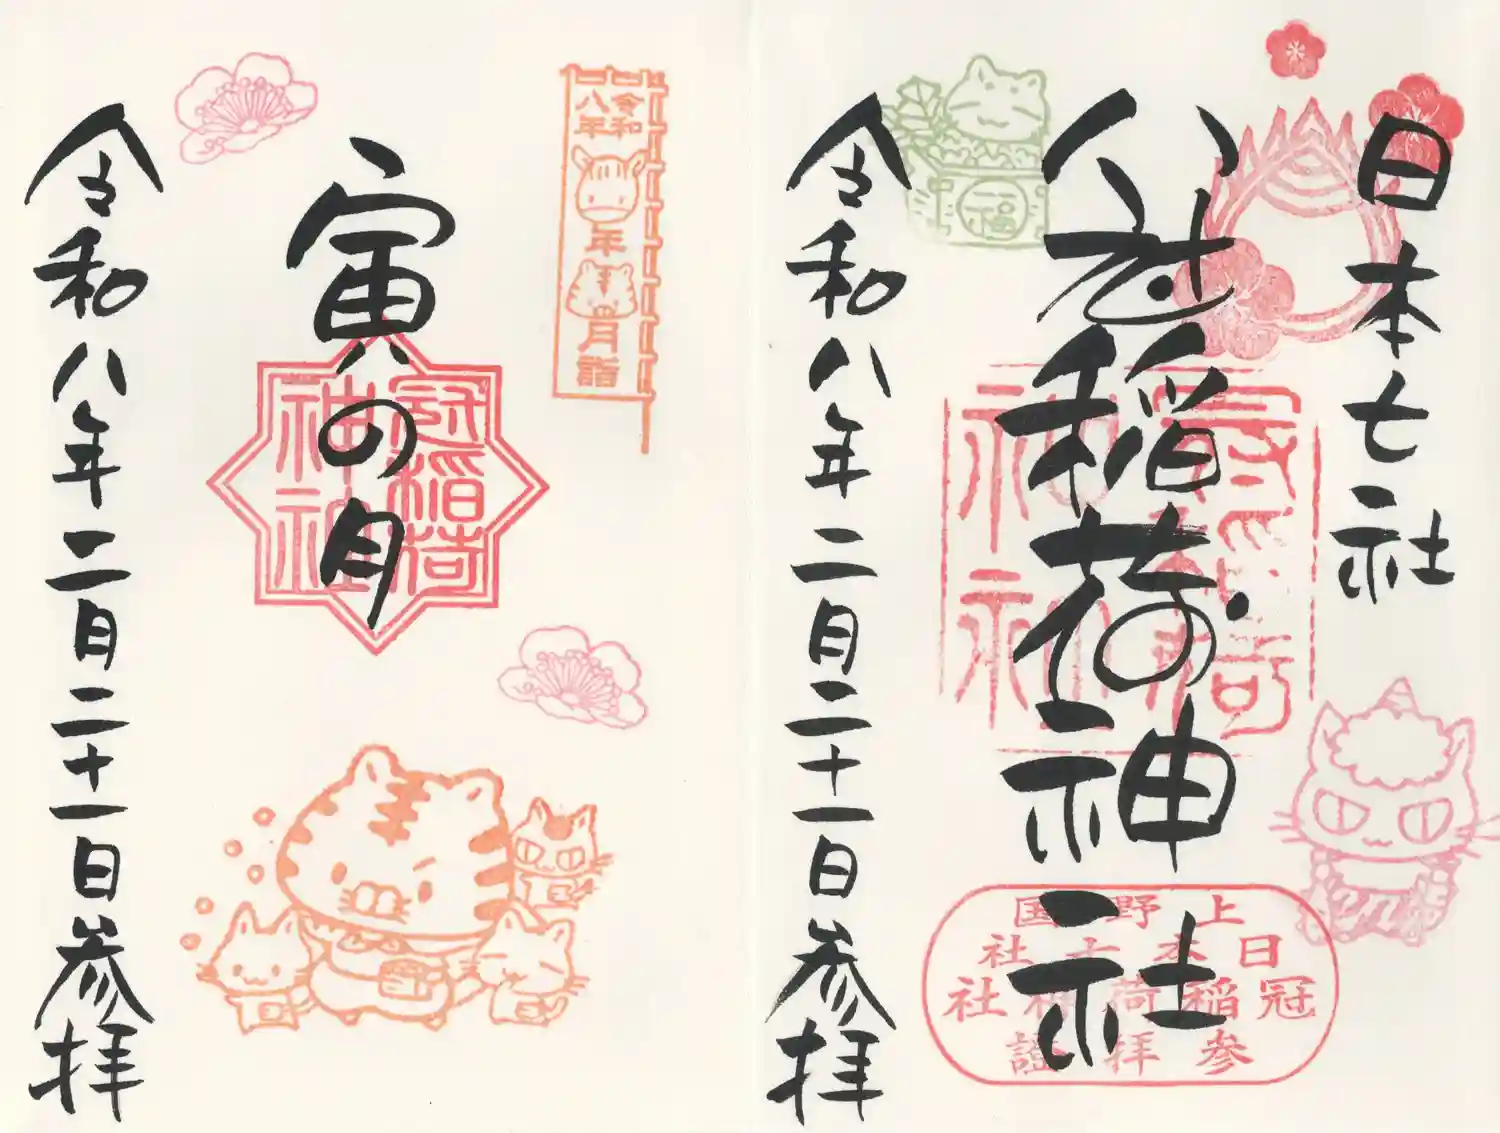 日本七社
冠稲荷神社
冠稲荷
神社
上野国
日本七社
冠稲荷神社
参拝證
令和八年二月二十一日参拝
令和
八年
年
月詣
寅の月
冠稲荷
神社
令和八年二月二十一日参拝